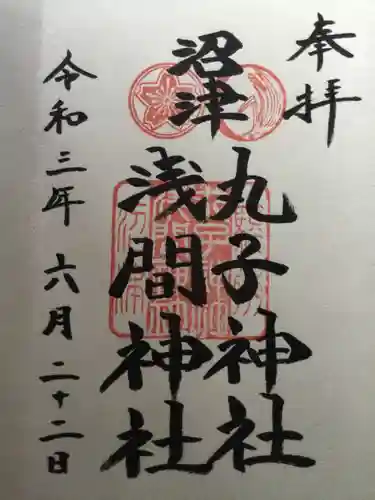 奉拝
沼津
丸子神社
浅間神社
令和三年六月二十二日